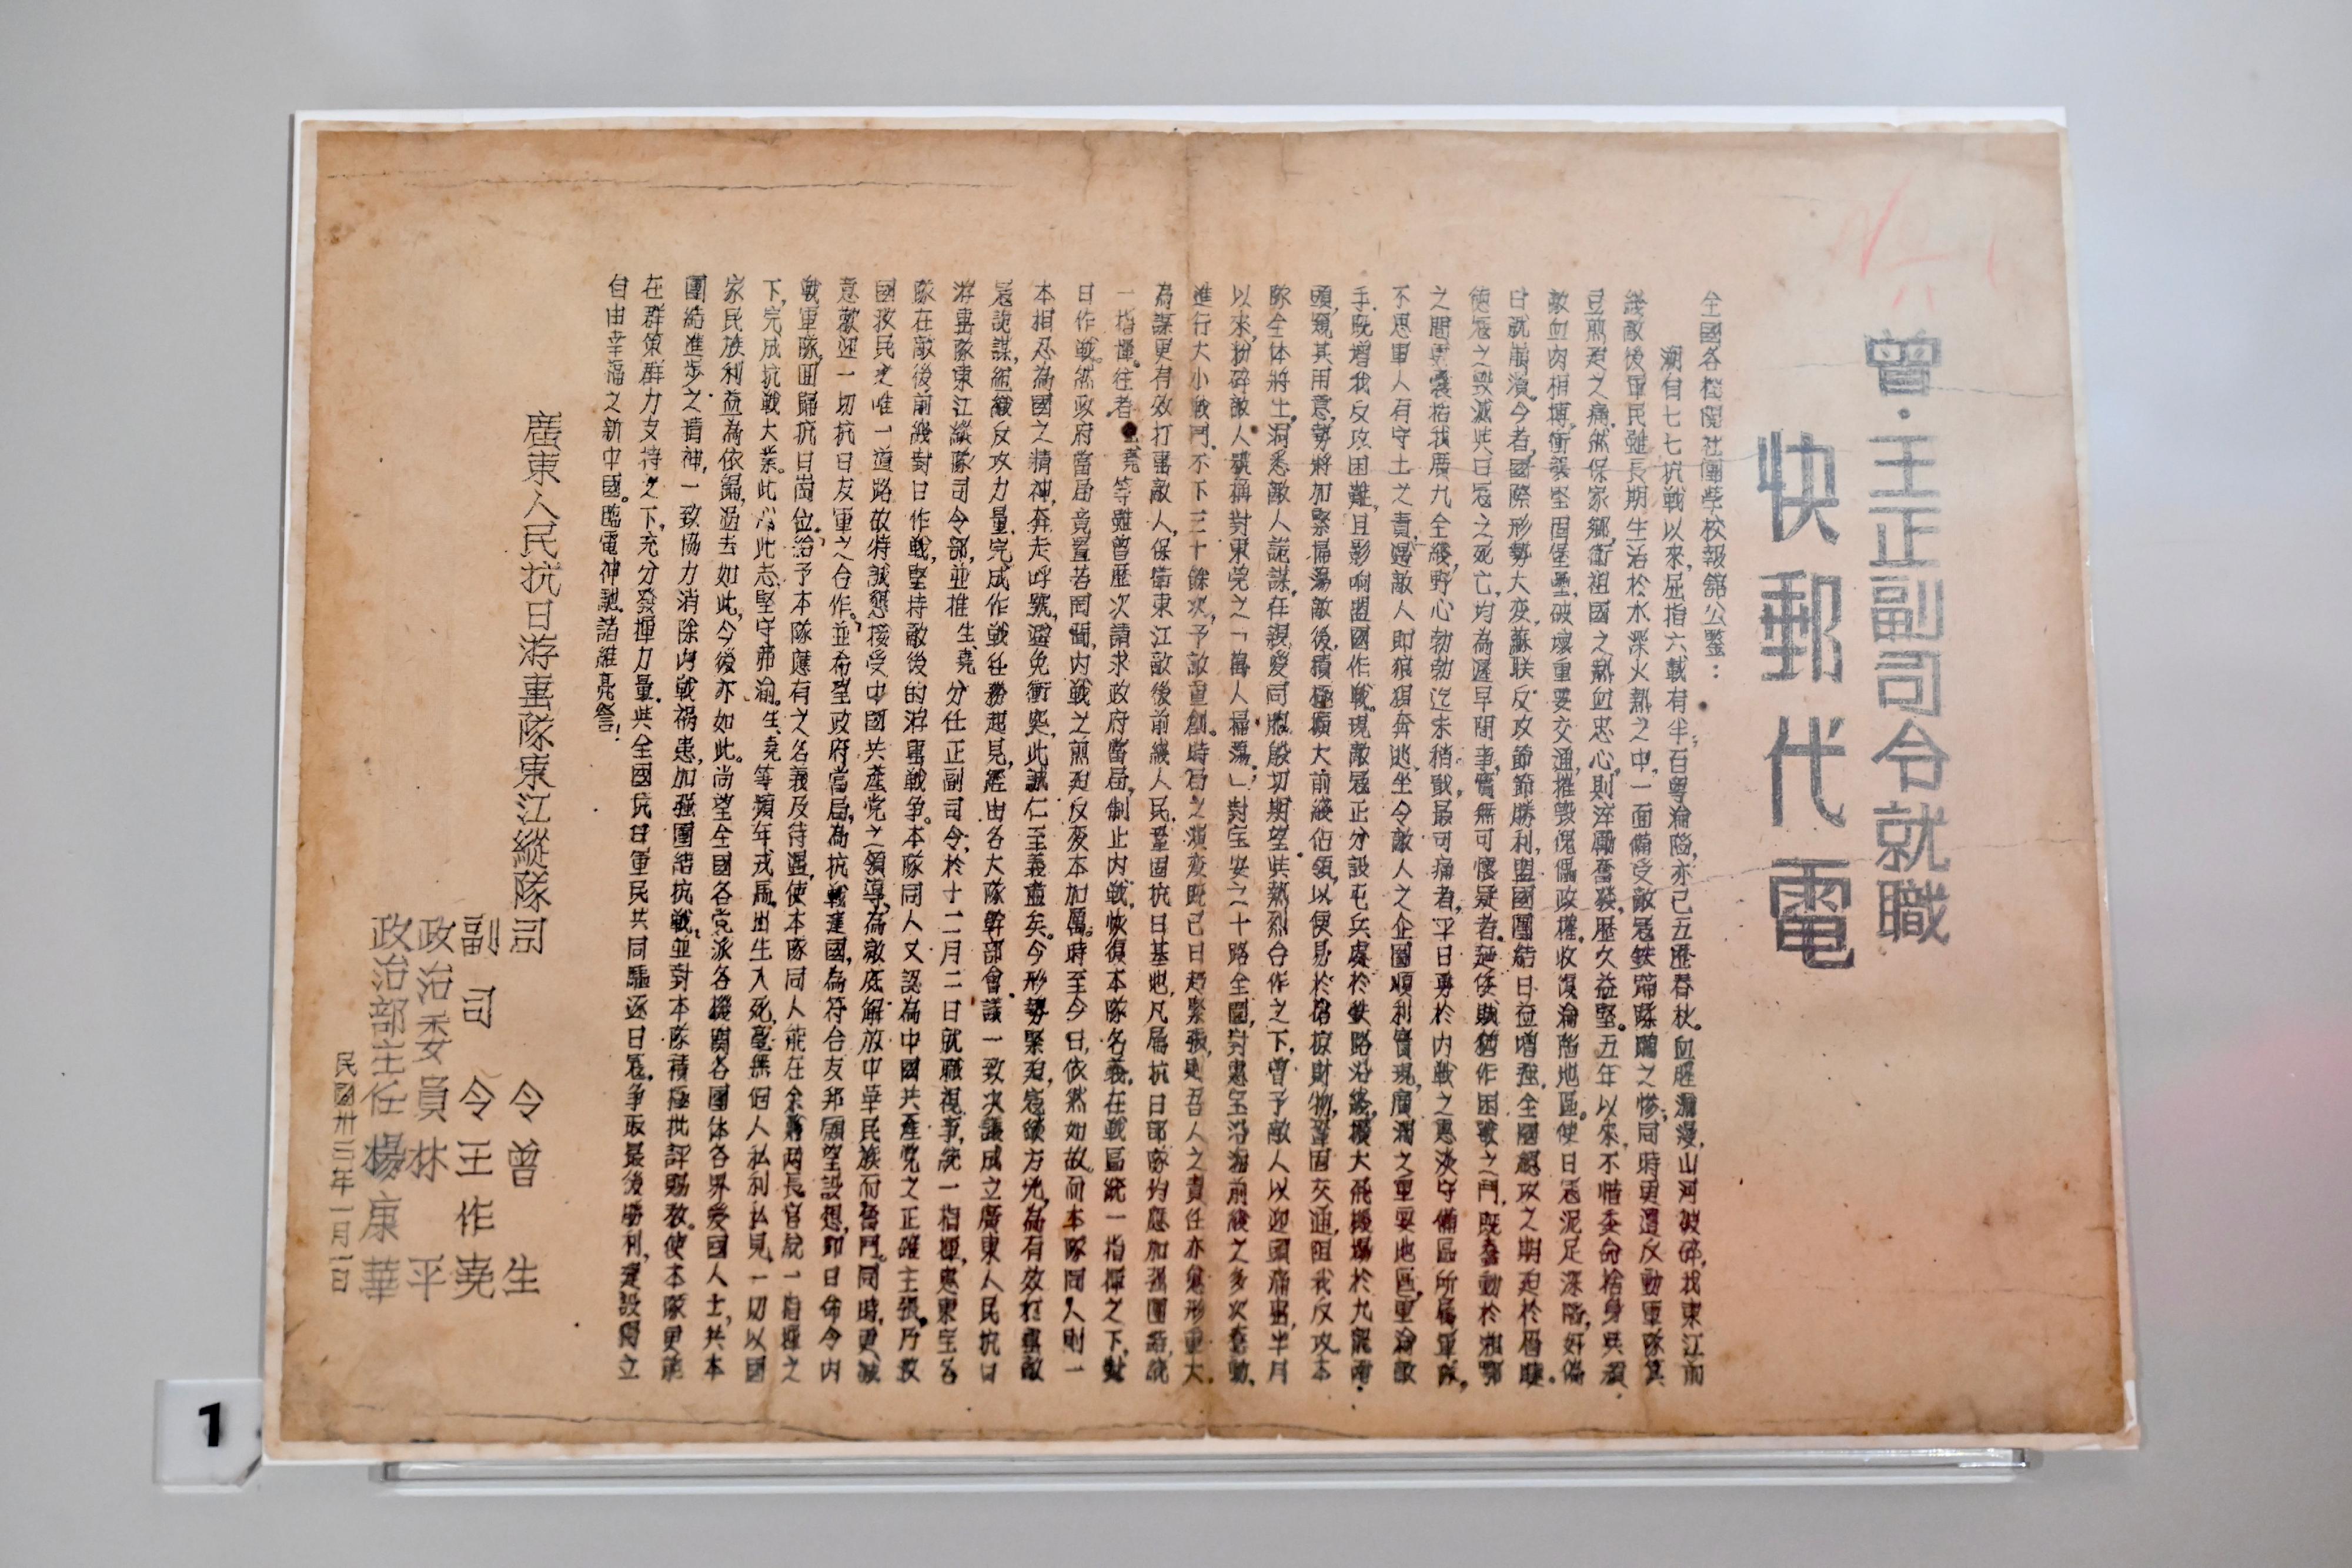 曾·王正副司令就職
快郵代電
全國各機関社團学校報舘公鑒：
溯自七七抗戰以來，屈指六載有半，百粤淪陷，亦已五歷春秋。血腥瀰漫，山河破碎，我東江前
綫敵後軍民雖長期生活於水深火熱之中，一面備受敵寇鉄蹄蹂躪之慘，同時更遭反動軍隊箕
豆煎迫之痛，然保家鄉，衛祖國之熱血忠心，則淬勵奮發，歷久益堅。五年以來，不惜委命捨身與頑
敵血肉相搏，衝鋒堅固堡壘，破壞重要交通，摧毀傀儡政權，收復淪陷地區。使日寇泥足深陷，奸偽
日就崩潰。今者，國際形勢大变，蘇联反攻節節勝利，盟國團結日益增強，全國總攻之期迫於眉睫。
德寇之毀滅與日寇之死亡，均為遲早間事，實無可懷疑者。
之間，囊括我廣九全綫，野心勃勃迄未稍戢，最可痛者，平日勇於內戰之惠淡守備區所屬軍隊，
不思軍人有守土之責，遇敵人即狼狽奔逃，坐令敵人之企圖順利實現，廣濶之重要地區，重淪敵
手，既增我反攻困難，且影响盟國作戰。現敵寇正分設屯兵處於鉄路沿綫，擴大飛機場於九龍
頭，窺其用意，勢將加緊掃蕩敵後，積極擴大前綫佔領，以便易於搶掠財物，鞏固交通，阻我反攻。本
隊全体將士，洞悉敵人詭謀，在親愛同胞殷切期望與熱烈合作之下，曾予敵人以迎頭痛擊，半月
以來，粉碎敵人號稱對東莞之「萬人掃蕩」，對宝安之十路全圍，對惠宝沿海前綫之多次蠢動，
進行大小戰鬥，不下三十餘次，予敵重創。時局之演变既已日趨緊張，則吾人之責任亦愈形重大。
為謀更有效打擊敵人，保衛東江敵後前綫人民，鞏固抗日基地，凡屬抗日部隊均應加强團結，統
一指揮。往者，生、堯等雖曾歷次請求政府當局，制止內戰，恢復本隊名義，在戰區統一指揮之下，對
日作戰。然政府當局竟置若罔聞，內戰之煎迫反变本加厲。時至今日，依然如故，而本隊同人則一
本相忍為國之精神，奔走呼號，避免衝突，此誠仁至義盡矣。今形勢緊迫，寇燄方兇，為有效打擊敵
寇詭謀，組織反攻力量，完成作戰任務起見，經由各大隊幹部會議，一致決議成立廣東人民抗日
游擊隊東江縱隊司令部，並推生、堯分任正副司令，於十二月二日就職視事，統一指揮，惠東宝各
隊在敵後前綫對日作戰，堅持敵後的游擊戰爭。本隊同人又認為中國共產党之正確主張，乃救
國救民之唯一道路，故特誠懇接受中國共產党之領導，為徹底解放中華民族而奮鬥。同時，更誠
意歡迎一切抗日友軍之合作。並希望政府當局，為抗戰建國，為符合友邦願望設想，即日命令內
戰軍隊，囬歸抗日崗位。給予本隊應有之名義及待遇，使本隊同人能在余蔣兩長官統一指揮之
下，完成抗戰大業。此心此志，堅守弗渝。生、堯等頻年戎馬，出生入死，毫無個人私利私見，一切以國
家民族利益為依歸，過去如此，今後亦如此。尚望全國各党派各機関各團体各界愛國人士，共本
團結進步之精神，一致協力消除內戰祸患，加强團結抗戰，並對本隊積極批評賜教。使本隊更能
在群策群力支持之下，充分發揮力量。與全國抗日軍民共同驅逐日寇。爭取最後勝利，建設獨立
自由幸福之新中國。臨電神馳，諸維亮詧！
廣東人民抗日游擊隊東江縱隊司令曾生
副司令王作堯
政治委員林平
政治部主任楊康華
民國卅三年一月一日
1